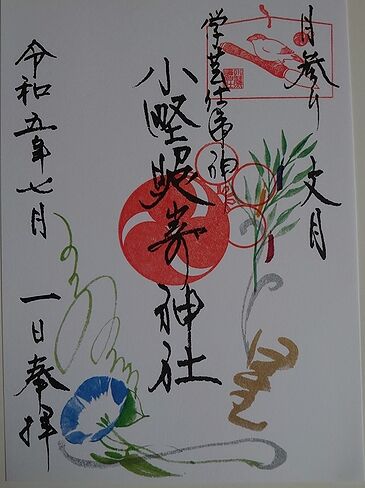 月参り 文月
学芸成就の神
小野照崎神社
令和五年七月 一日奉拝